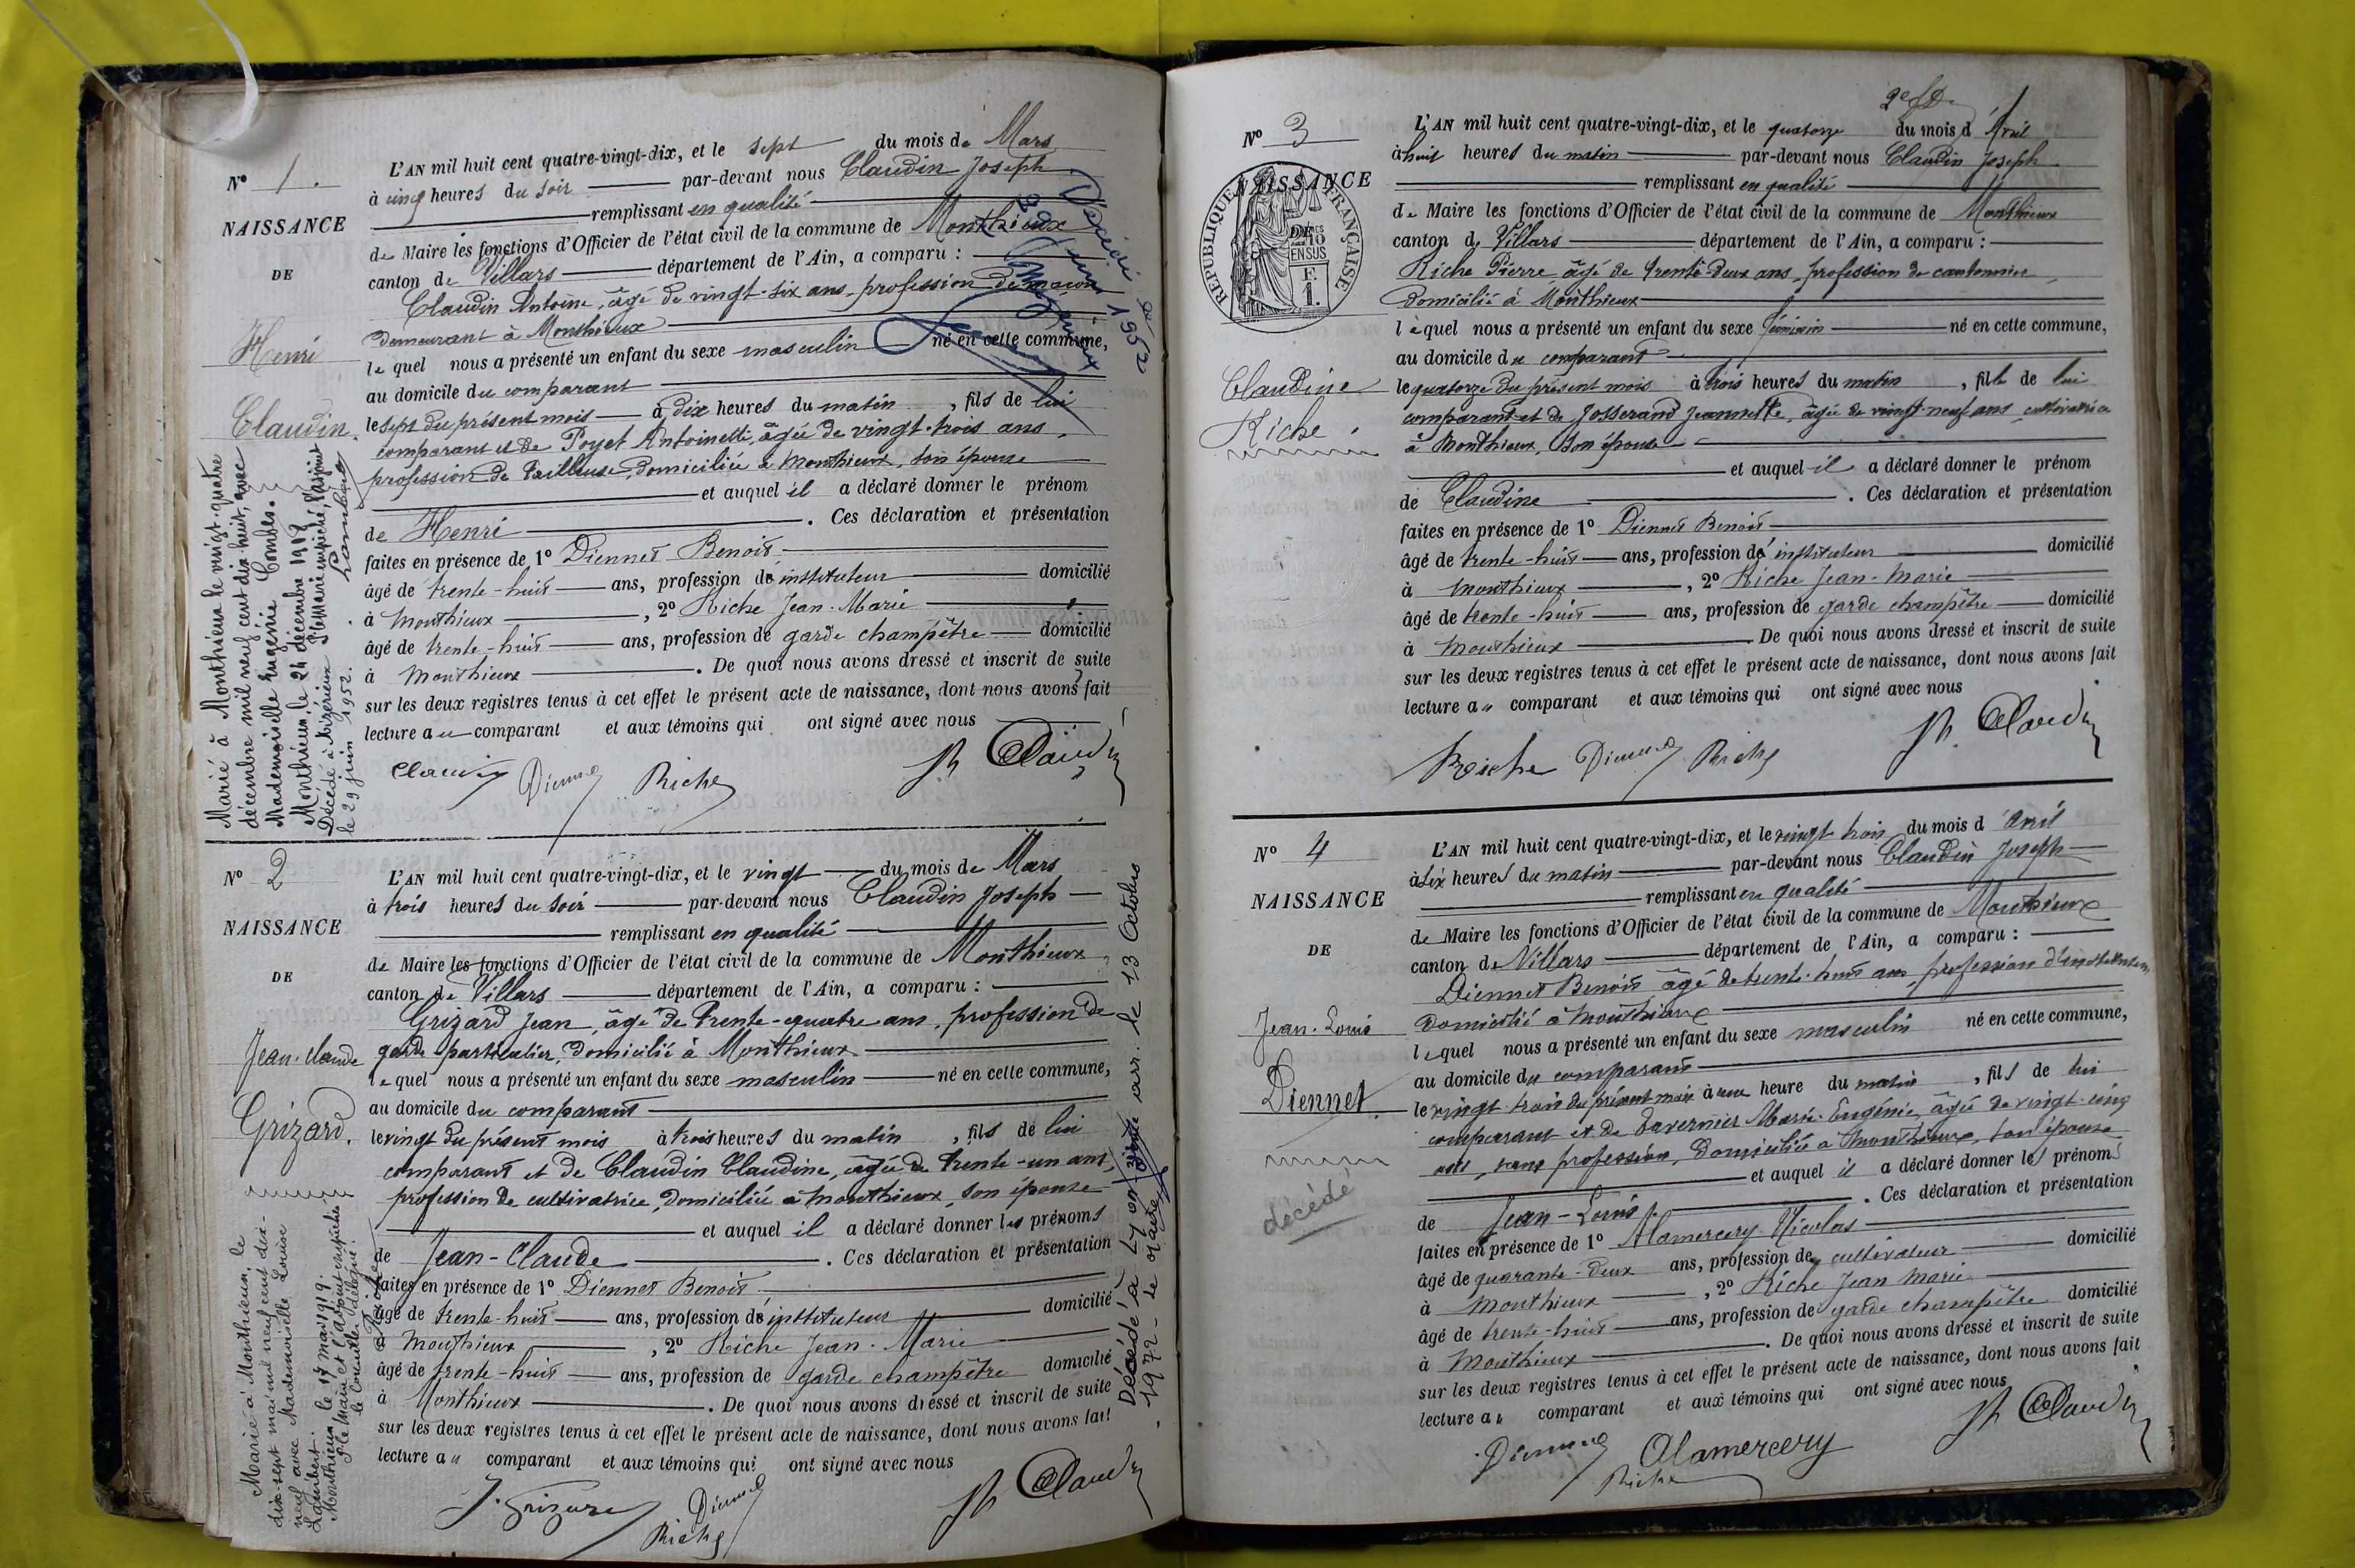 Nº 1.
NAISSANCE
DE
Henri
Claudin.
L'AN mil huit cent quatre-vingt-dix, et le sept du mois de Mars
à cinq heures du soir par-devant nous Claudin Joseph
remplissant en qualité
de Maire les fonctions d'Officier de l'état civil de la commune de Monthieux
canton de Villars département de l'Ain, a comparu :
Claudin Antoine, âgé de vingt-six ans, profession de maçon
demeurant à Monthieux
lequel nous a présenté un enfant du sexe masculin né en cette commune,
au domicile du comparant
le sept du présent mois à dix heures du matin, fils de lui
comparant et de Poyet Antoinette, âgée de vingt-trois ans,
profession de tailleuse, domiciliée à Monthieux, son épouse
et auquel il a déclaré donner le prénom
de Henri. Ces déclaration et présentation
faites en présence de 1º Diennet Benoit
âgé de trente-huit ans, profession d'instituteur domicilié
à Monthieux, 2º Riche Jean-Marie
âgé de trente-huit ans, profession de garde champêtre domicilié
à Monthieux. De quoi nous avons dressé et inscrit de suite
sur les deux registres tenus à cet effet le présent acte de naissance, dont nous avons fait
lecture au comparant et aux témoins qui ont signé avec nous
Claudin Diennet Riche Jh Claudin
Marié à Monthieux le vingt-quatre
décembre mil neuf cent dix huit, avec
Mademoiselle Eugénie Combes.
Monthieux, le 24 décembre 1918
P. le Maire empêché, l'adjoint
Décédé à Mizérieux
le 29 juin 1952.
Décédé à
Mizérieux
29 juin 1952
Nº 2
NAISSANCE
DE
Jean-Claude
Grizard.
L'AN mil huit cent quatre-vingt-dix, et le vingt du mois de Mars
à trois heures du soir par-devant nous Claudin Joseph
remplissant en qualité
de Maire les fonctions d'Officier de l'état civil de la commune de Monthieux
canton de Villars département de l'Ain, a comparu :
Grizard Jean, âgé de trente-quatre ans, profession de
garde particulier, domicilié à Monthieux
lequel nous a présenté un enfant du sexe masculin né en cette commune,
au domicile du comparant
le vingt du présent mois à trois heures du matin, fils de lui
comparant et de Claudin Claudine, âgée de trente-un ans,
profession de cultivatrice, domiciliée à Monthieux, son épouse
et auquel il a déclaré donner les prénoms
de Jean-Claude. Ces déclaration et présentation
faites en présence de 1º Diennet Benoit
âgé de trente-huit ans, profession d'instituteur domicilié
à Monthieux, 2º Riche Jean-Marie
âgé de trente-huit ans, profession de garde champêtre domicilié
à Monthieux. De quoi nous avons dressé et inscrit de suite
sur les deux registres tenus à cet effet le présent acte de naissance, dont nous avons fait
lecture au comparant et aux témoins qui ont signé avec nous
J. Grizard Diennet Riche Jh Claudin
Marié à Monthieux, le
dix-sept mai mil neuf cent dix-
neuf avec Mademoiselle Louise
Lambert.
Monthieux le 17 mai 1919.
P. le Maire et l'adjoint empêchés
le Conseiller délégué.
Décédé à Lyon arr. le 13 Octobre
1972 - le Maire
Nº 3
NAISSANCE
DE
RÉPUBLIQUE FRANÇAISE
EN SUS
Claudine
Riche.
L'AN mil huit cent quatre-vingt-dix, et le quatorze du mois d'Avril
à huit heures du matin par-devant nous Claudin Joseph
remplissant en qualité
de Maire les fonctions d'Officier de l'état civil de la commune de Monthieux
canton de Villars département de l'Ain, a comparu :
Riche Pierre, âgé de trente-deux ans, profession de cantonnier,
domicilié à Monthieux
lequel nous a présenté un enfant du sexe féminin né en cette commune,
au domicile du comparant
le quatorze du présent mois à trois heures du matin, fille de lui
comparant et de Josserand Jeannette, âgée de vingt-neuf ans, cultivatrice
à Monthieux, son épouse
et auquel il a déclaré donner le prénom
de Claudine. Ces déclaration et présentation
faites en présence de 1º Diennet Benoit
âgé de trente-huit ans, profession d'instituteur domicilié
à Monthieux, 2º Riche Jean-Marie
âgé de trente-huit ans, profession de garde champêtre domicilié
à Monthieux. De quoi nous avons dressé et inscrit de suite
sur les deux registres tenus à cet effet le présent acte de naissance, dont nous avons fait
lecture au comparant et aux témoins qui ont signé avec nous
Riche Diennet Riche Jh. Claudin
Nº 4
NAISSANCE
DE
Jean-Louis
Diennet.
décédé
L'AN mil huit cent quatre-vingt-dix, et le vingt trois du mois d'avril
à six heures du matin par-devant nous Claudin Joseph
remplissant en qualité
de Maire les fonctions d'Officier de l'état civil de la commune de Monthieux
canton de Villars département de l'Ain, a comparu :
Diennet Benoit âgé de trente-huit ans, profession d'instituteur,
domicilié à Monthieux
lequel nous a présenté un enfant du sexe masculin né en cette commune,
au domicile du comparant
le vingt-trois du présent mois à une heure du matin, fils de lui
comparant et de Tavernier Marie-Eugénie, âgée de vingt-cinq
ans, sans profession, domiciliée à Monthieux, son épouse
et auquel il a déclaré donner les prénoms
de Jean-Louis. Ces déclaration et présentation
faites en présence de 1º Alamercery Nicolas
âgé de quarante-deux ans, profession de cultivateur domicilié
à Monthieux, 2º Riche Jean Marie
âgé de trente-huit ans, profession de garde champêtre domicilié
à Monthieux. De quoi nous avons dressé et inscrit de suite
sur les deux registres tenus à cet effet le présent acte de naissance, dont nous avons fait
lecture au comparant et aux témoins qui ont signé avec nous
Diennet Alamercery Jh Claudin
Riche